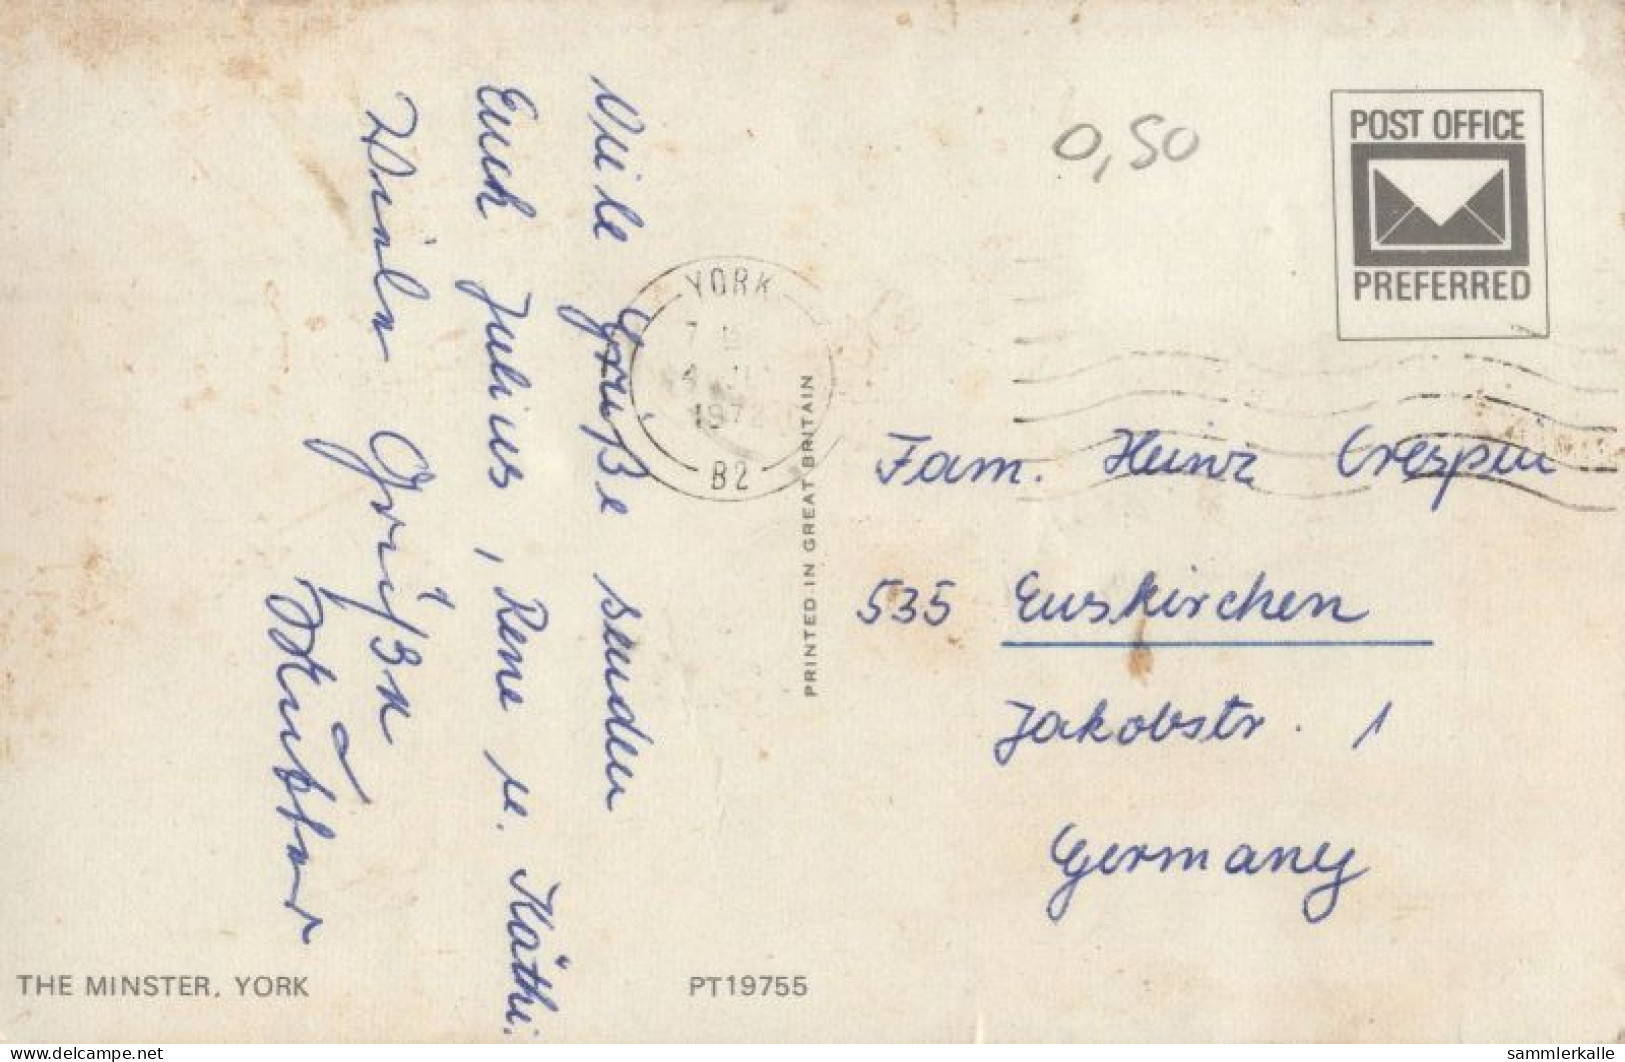 Viele Grüße senden
Euch Julius, Rene u. Käthi.
Vieln Grüßn
POST OFFICE
PREFERRED
0,50
YORK
1972
B2
PRINTED IN GREAT BRITAIN
Fam. Heinz Crespin
535 Euskirchen
Jakobstr. 1
Germany
THE MINSTER, YORK
PT19755
www.delcampe.net
sammlerkalle